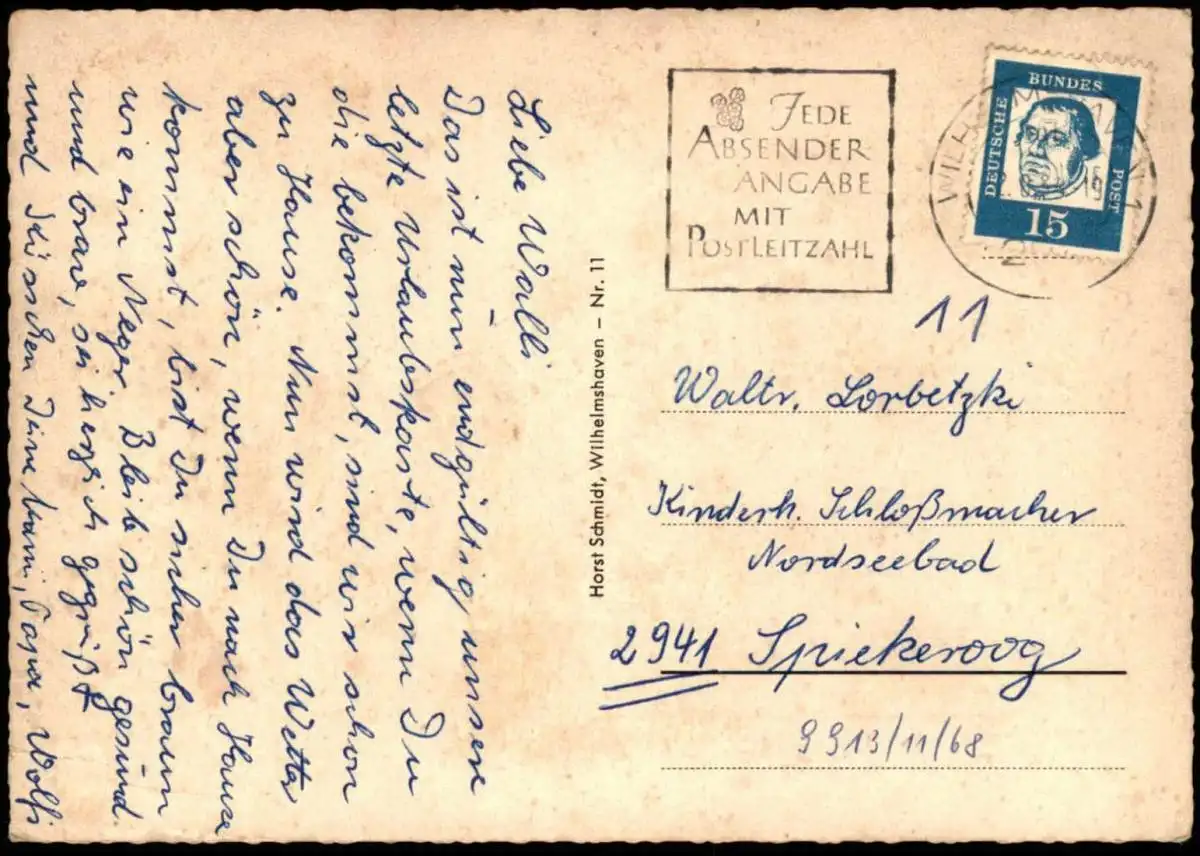 Liebe Walli
Das ist nun endgültig unsere
letzte Urlaubskarte, wenn Du
die bekommst, sind wir schon
zu Hause. Nun wird das Wetter
aber schön, wenn Du nach Hause
kommst, bist Du sicher braun
wie ein Neger. Bleib schön gesund
und brav, sei herzlich gegrüßt
und Küsschen Deine Mami, Papa, Wolfi
Horst Schmidt, Wilhelmshaven – Nr. 11
JEDE
ABSENDER
ANGABE
MIT
POSTLEITZAHL
DEUTSCHE BUNDES POST
15
11
Waltr. Lorbetzki
Kinderh. Schloßmacher
Nordseebad
2941 Spiekeroog
9913/11/68